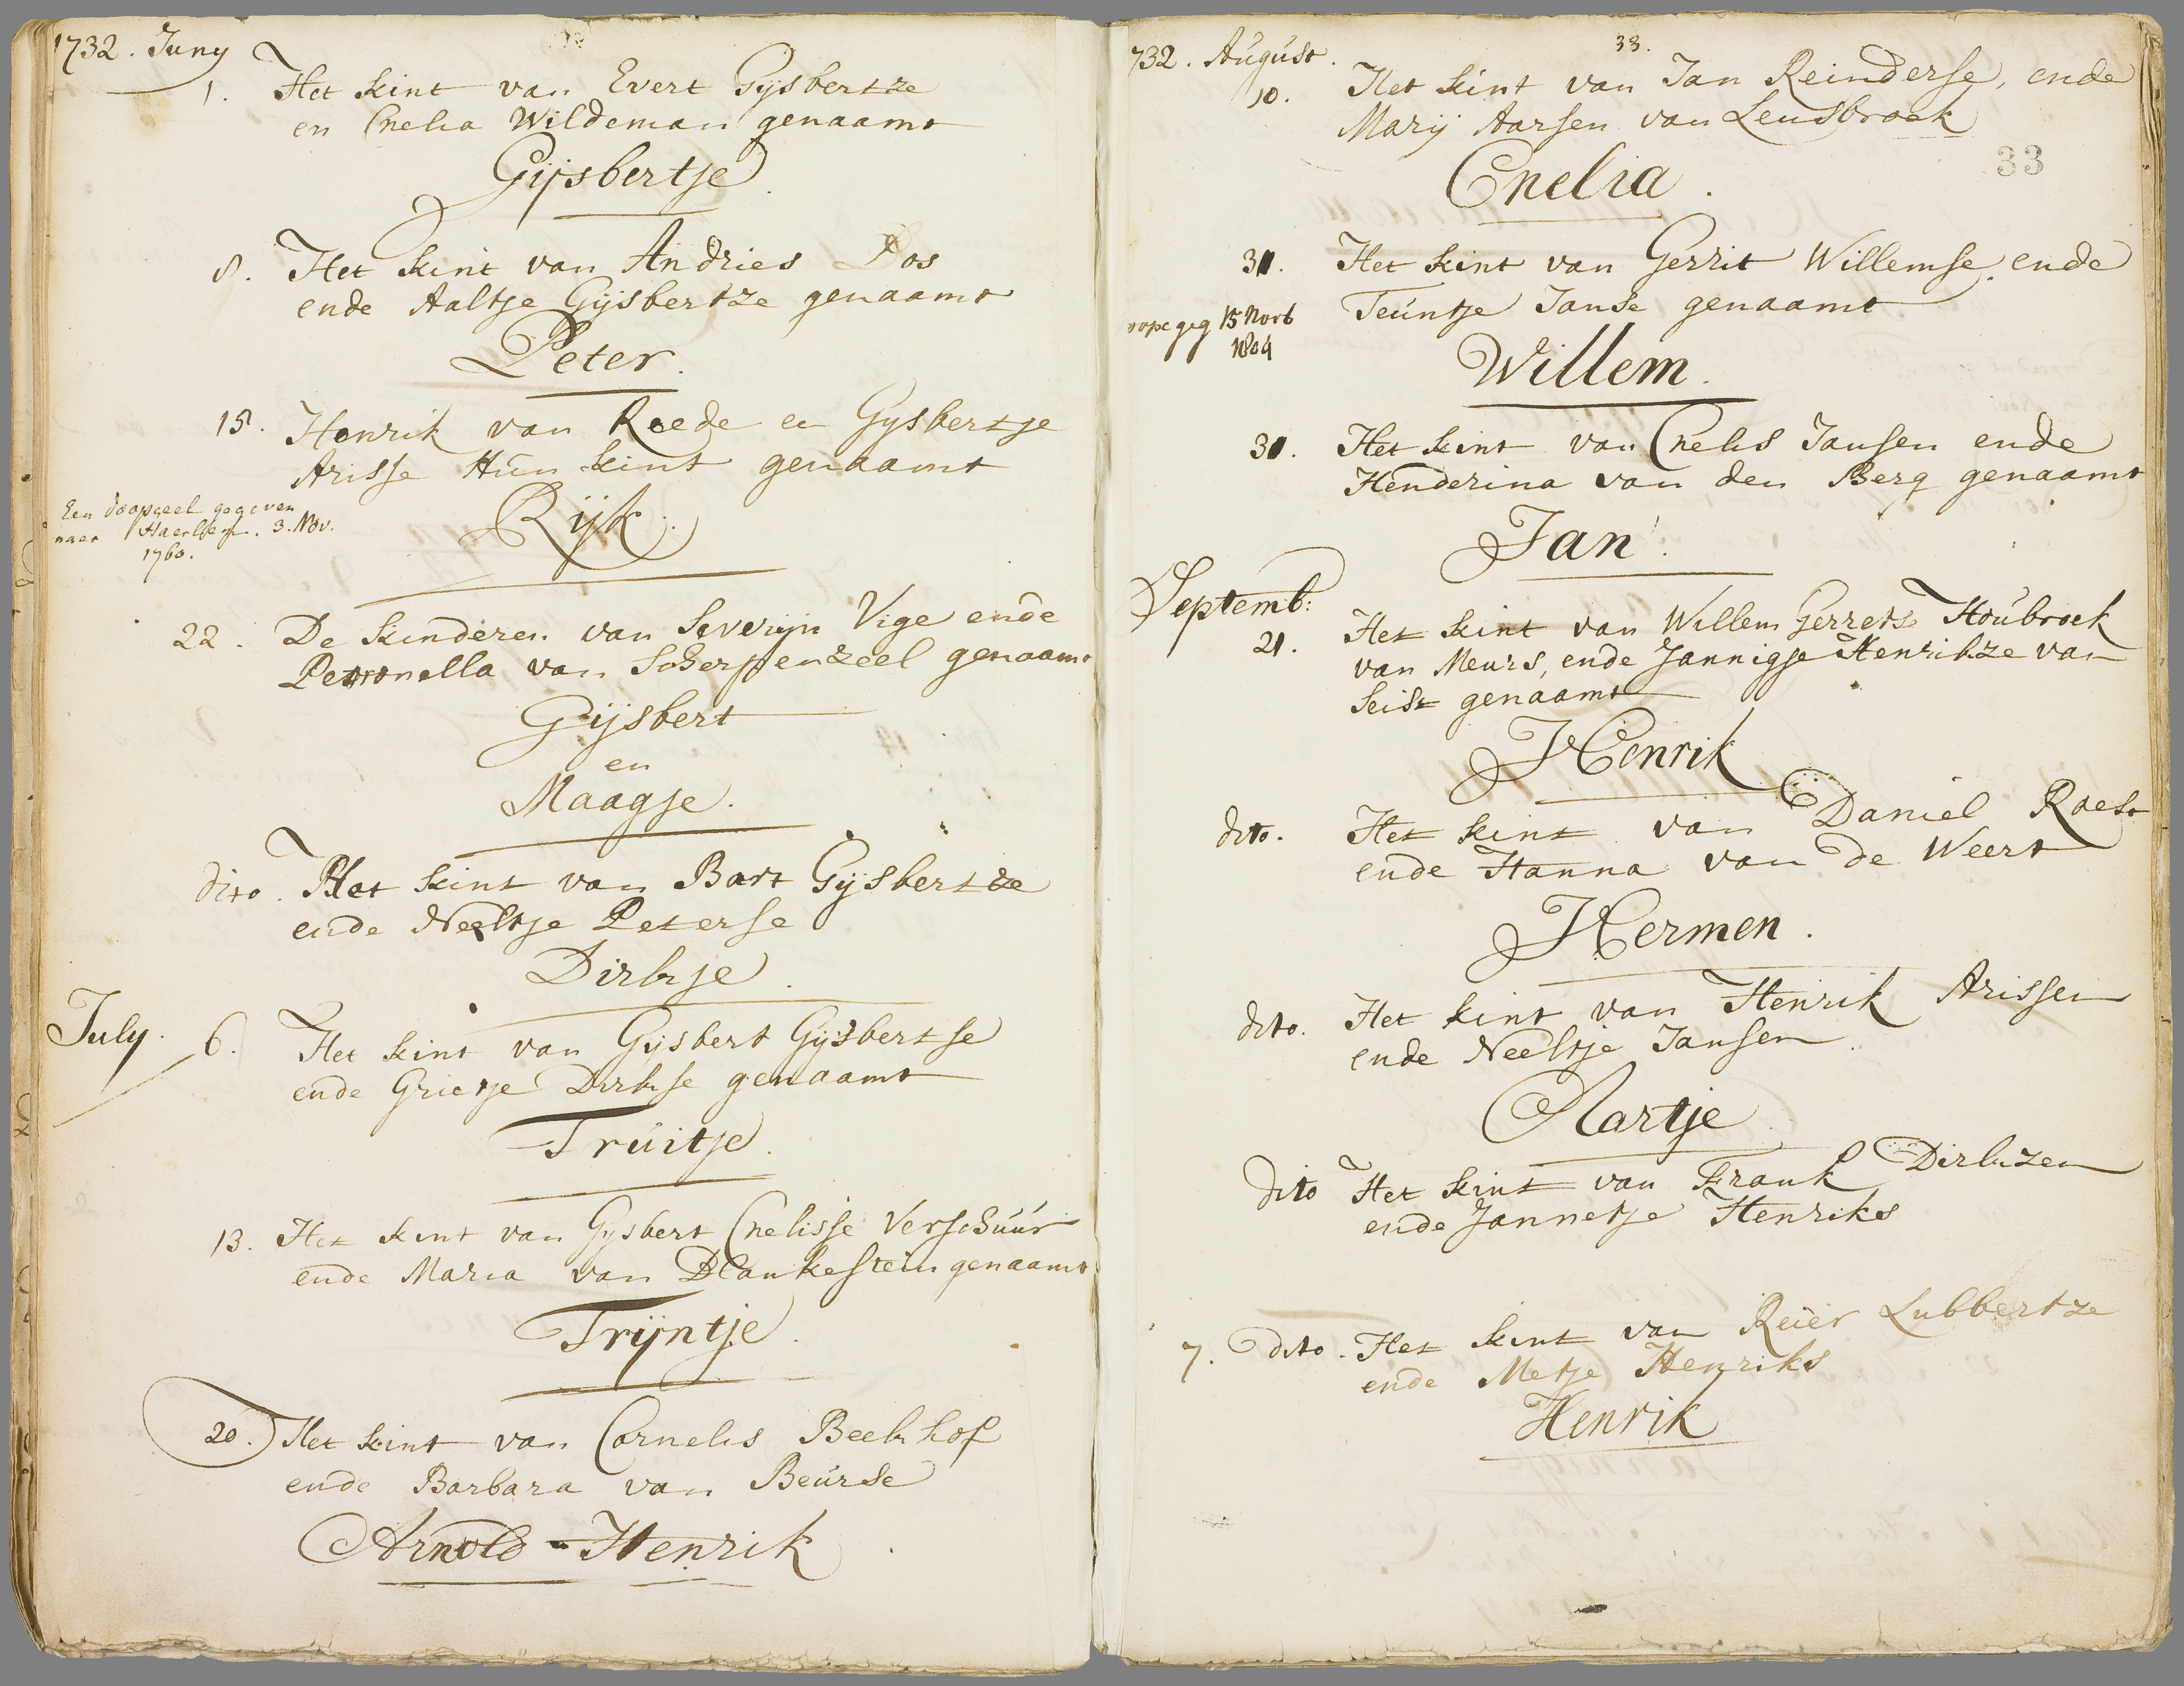 1732. Juny
1. Het kint van Evert Gijsbertze
en Cnelia Wildeman genaamt
Gijsbertje
8. Het kint van Andries Dos
ende Aaltje Gijsbertze genaamt
Peter.
15. Henrik van Reede en Gysbertje
Arisse Hún kint genaamt
Een doopceel gegeven
naer Haerlem. 3. Nov.
1760.
Rijk.
22. De kinderen van Severijn Vige ende
Petronella van Scherpenzeel genaamt
Gijsbert
en
Maagje.
dito. Het kint van Bart Gijsbertze
ende Neeltje Peterse
Dirkje.
July. 6. Het kint van Gijsbert Gijsbertse
ende Grietje Dirkse genaamt
Trúitje.
13. Het kint van Gysbert Cnelisse Verschúúr
ende Maria van Blankestein genaamt
Trijntje.
20. Het kint van Cornelis Beekhof
ende Barbara van Beúrse
Arnold-Henrik
732. Aúgúst. 33.
10. Het kint van Jan Reinderse, ende
Marij Aarsen van Leusbroek
33
Cnelia.
31. Het kint van Gerrit Willemse, ende
Teúntje Janse genaamt
geg 15 Novb
1804
Willem.
31. Het kint van Cnelis Jansen ende
Henderina van den Berg genaamt
Jan.
Septemb:
21. Het kint van Willem Gerrets Hoúbroek
van Meurs, ende Jannigje Henrikze van
Seist genaamt
Henrik
dito. Het kint van Daniel Roest
ende Hanna van de Weert
Hermen.
dito. Het kint van Henrik Arissen
ende Neeltje Jansen
Aartje
dito Het kint van Frank Dirkzen
ende Jannetje Henriks
7. dito. Het kint van Reier Lubbertze
ende Metje Henriks
Henrik